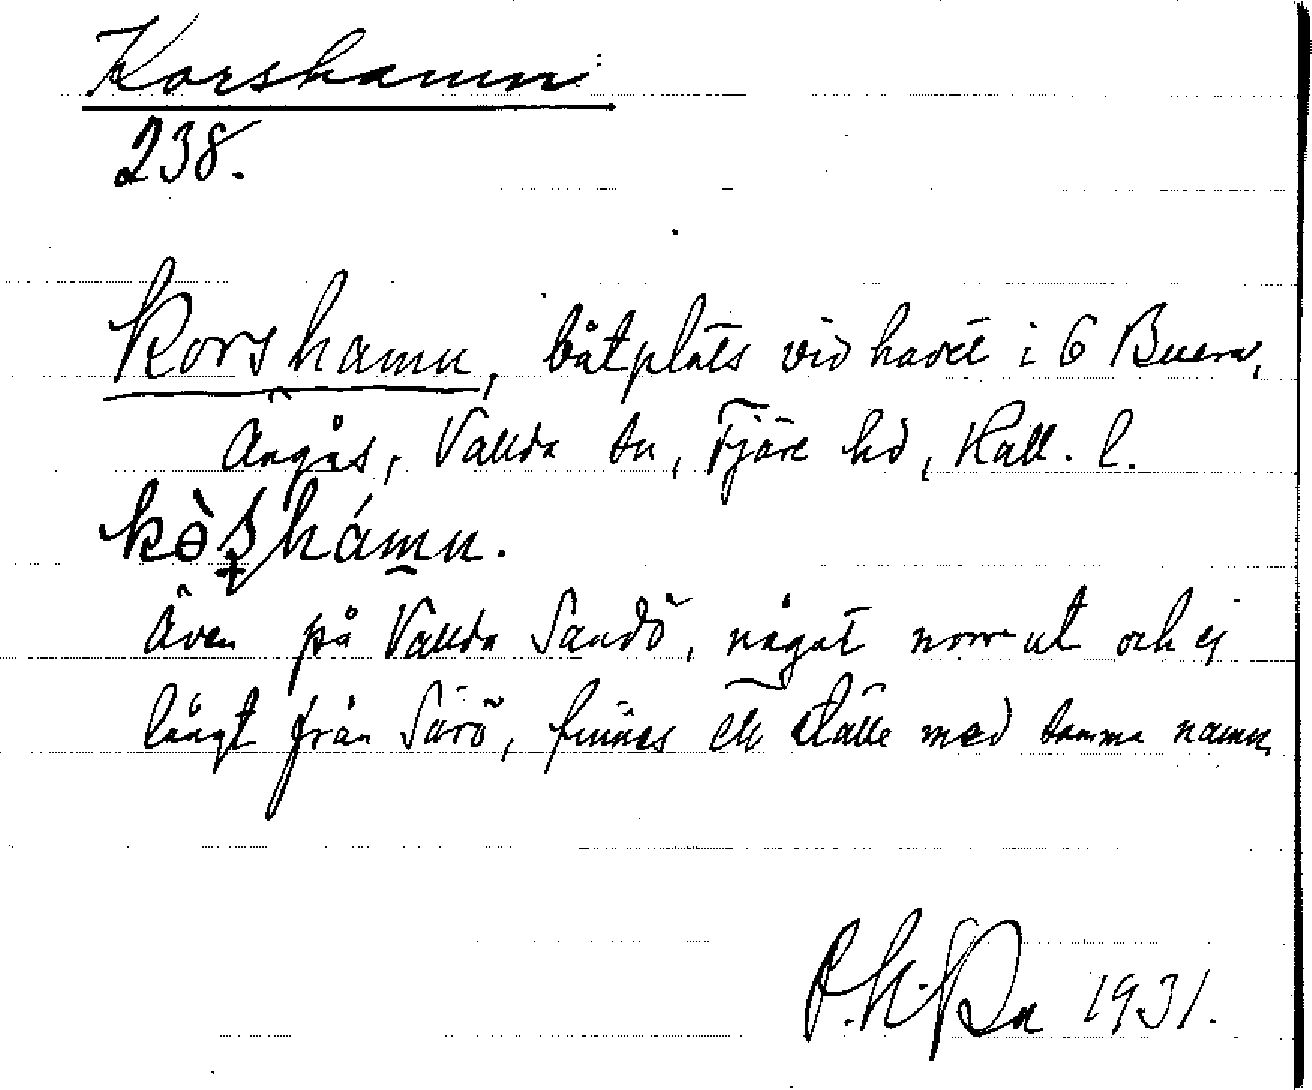 Korshamn
238.
Korshamn, båtplats vid havet i 6 Buera,
Ängås, Vallda sn, Fjäre hd, Hall. l.
Även på Vallda Sandö, något norrut och ej
långt från Särö, finnes ett ställe med samma namn
1931.